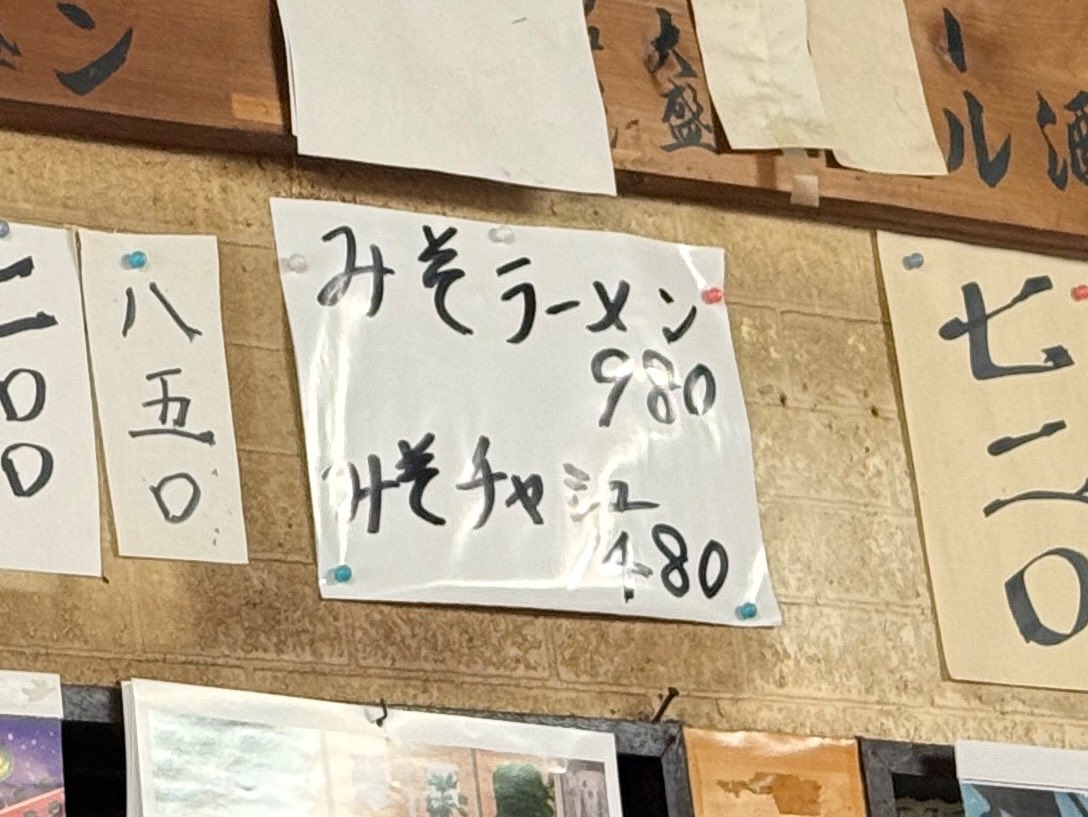 ン
大盛
ール
酒
二〇〇
八五〇
みそラーメン
980
みそチャシュ
480
七二〇